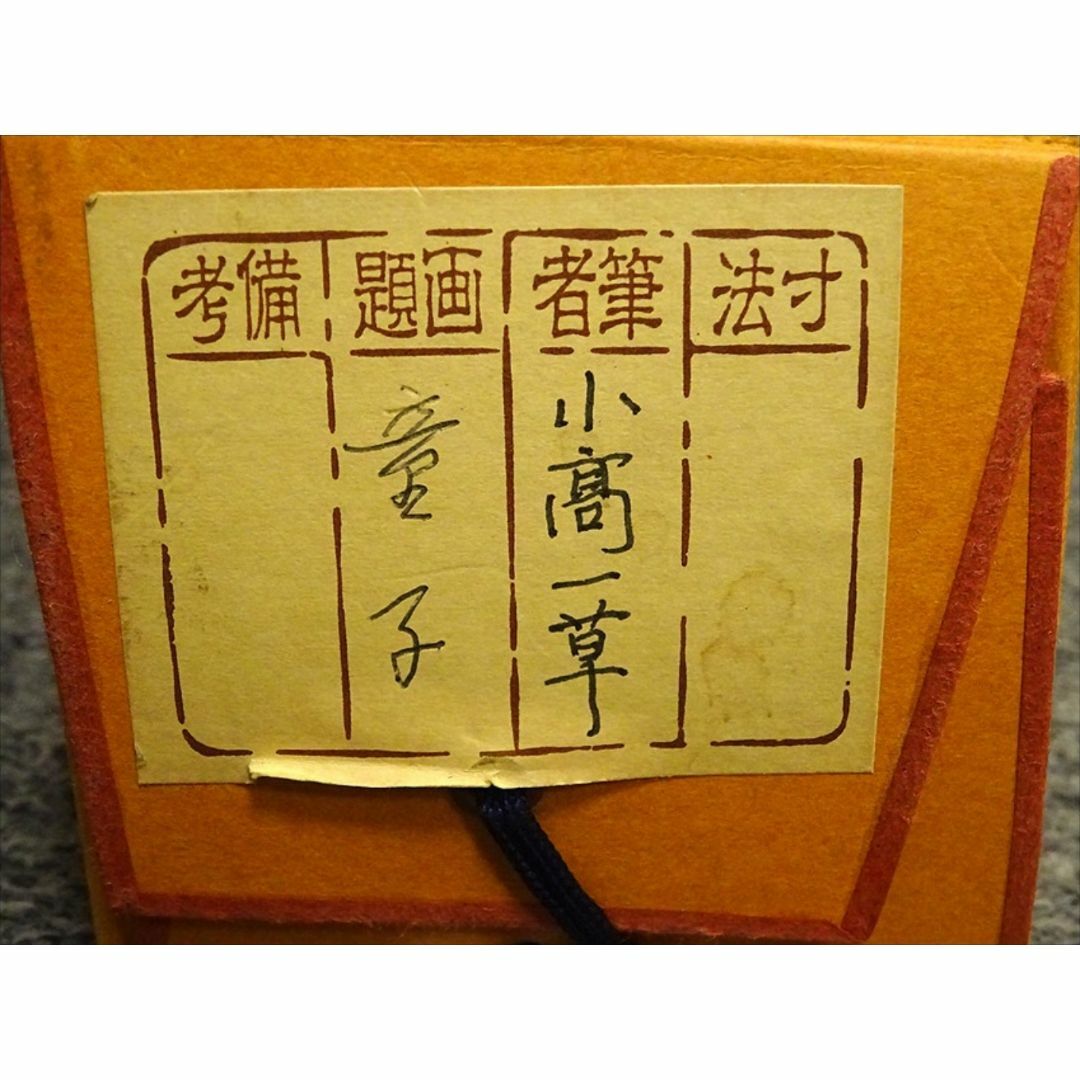 寸法
筆者
小高一草
画題
童子
備考